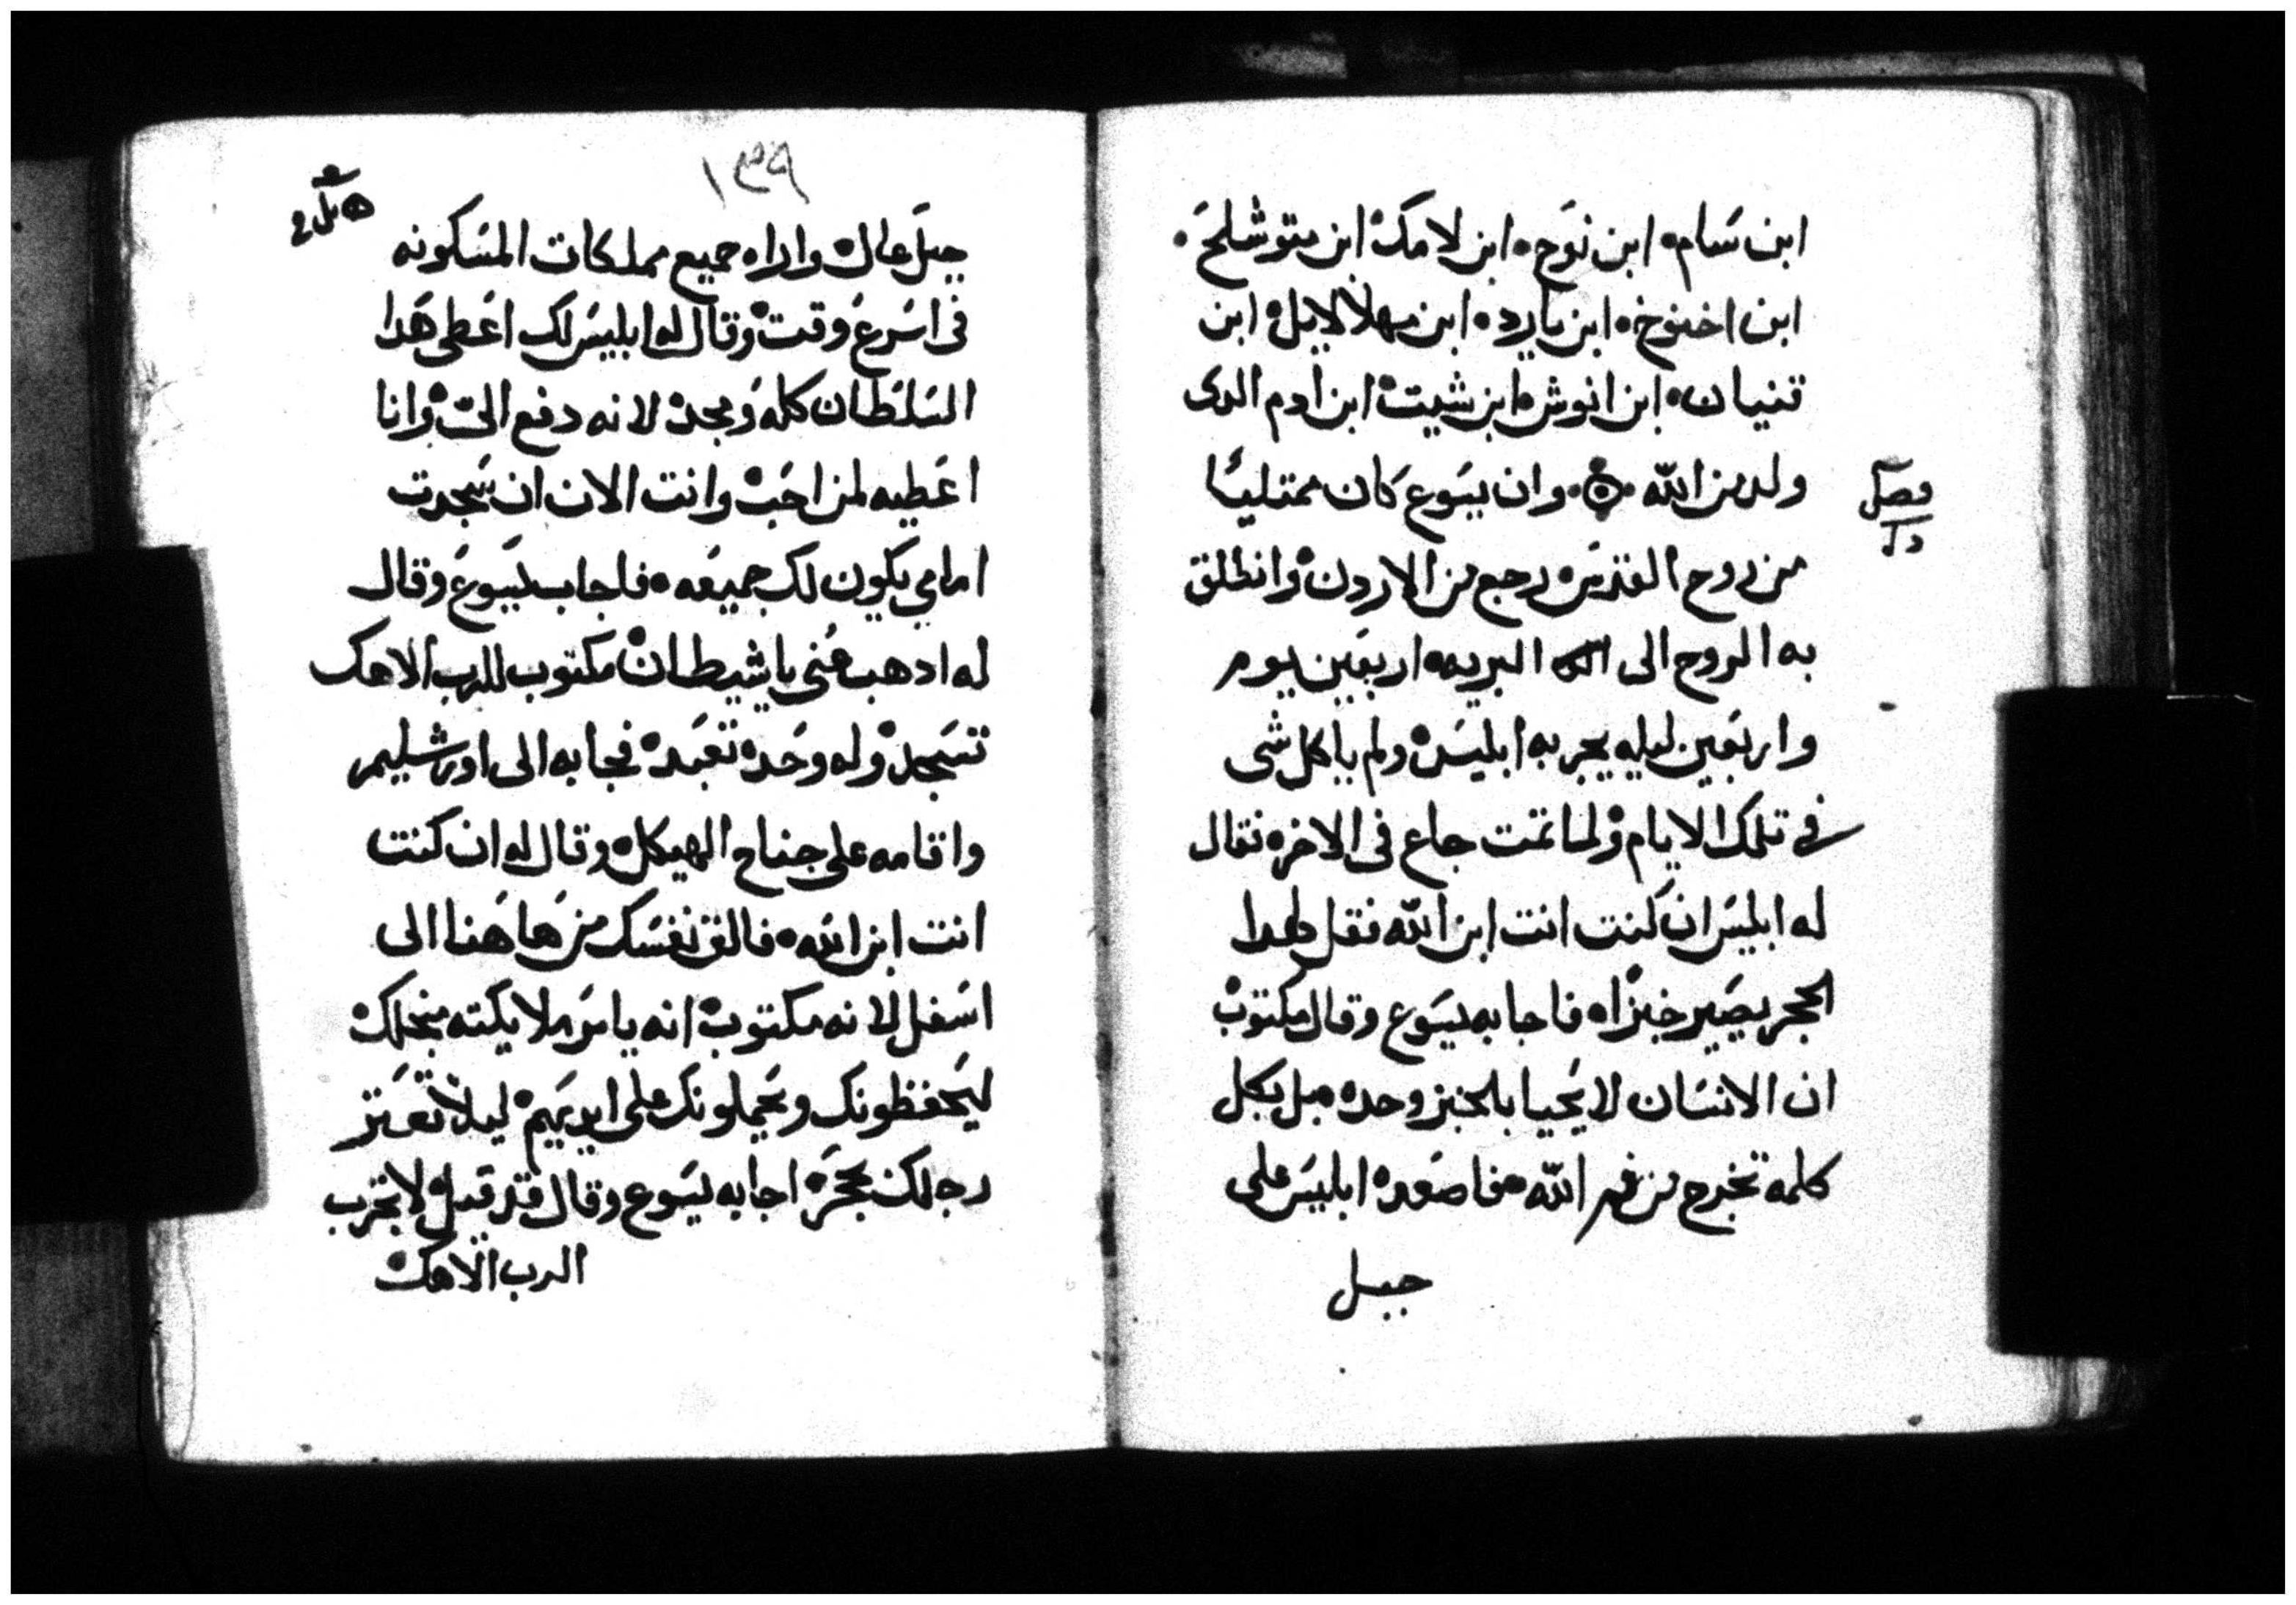 ابن سام، ابن نوح، ابن لامك ابن متوشلح،
ابن اخنوخ، ابن يارد، ابن مهلالايل ابن
قنيان، ابن انوش ابن شيت ابن ادم الدى
ولد من الله ۞ وان يسوع كان ممتليًا
فصل
من روح القدس رجع من الاردن وانطلق
به الروح الى البريه اربعين يوم
واربعين ليله يجربه ابليس ولم ياكل شى
فى تلك الايام ولما تمت جاع فى الاخره فقال
له ابليس ان كنت انت ابن الله فقل لهدا
الحجر يصير خبزا، فاجابه يسوع وقال مكتوب
ان الانسان لا يحيا بالخبز وحده بل بكل
كلمة تخرج من فم الله، فاصعده ابليس على
جبل
١٣٩
جبل عال واراه جميع مملكات المسكونه
فى اسرع وقت وقال له ابليس لك اعطى هدا
السلطان كله ومجده لانه دفع الىّ وانا
اعطيه لمن احب وانت الان ان سجدت
امامي يكون لك جميعه، فاجاب يسوع وقال
له ادهب عنى يا شيطان مكتوب للرب الاهك
تسجد وله وحده تعبد فجا به الى اورشليم
واقامه على جناح الهيكل وقال له ان كنت
انت ابن الله، فالق نفسك من هاهنا الى
اسفل لانه مكتوب انه يامر ملايكته منجلك
ليحفظونك ويحملونك على ايديهم ليلا تعتر
رجلك بحجر اجابه يسوع وقال قد قيل لا تجرب
الرب الاهك